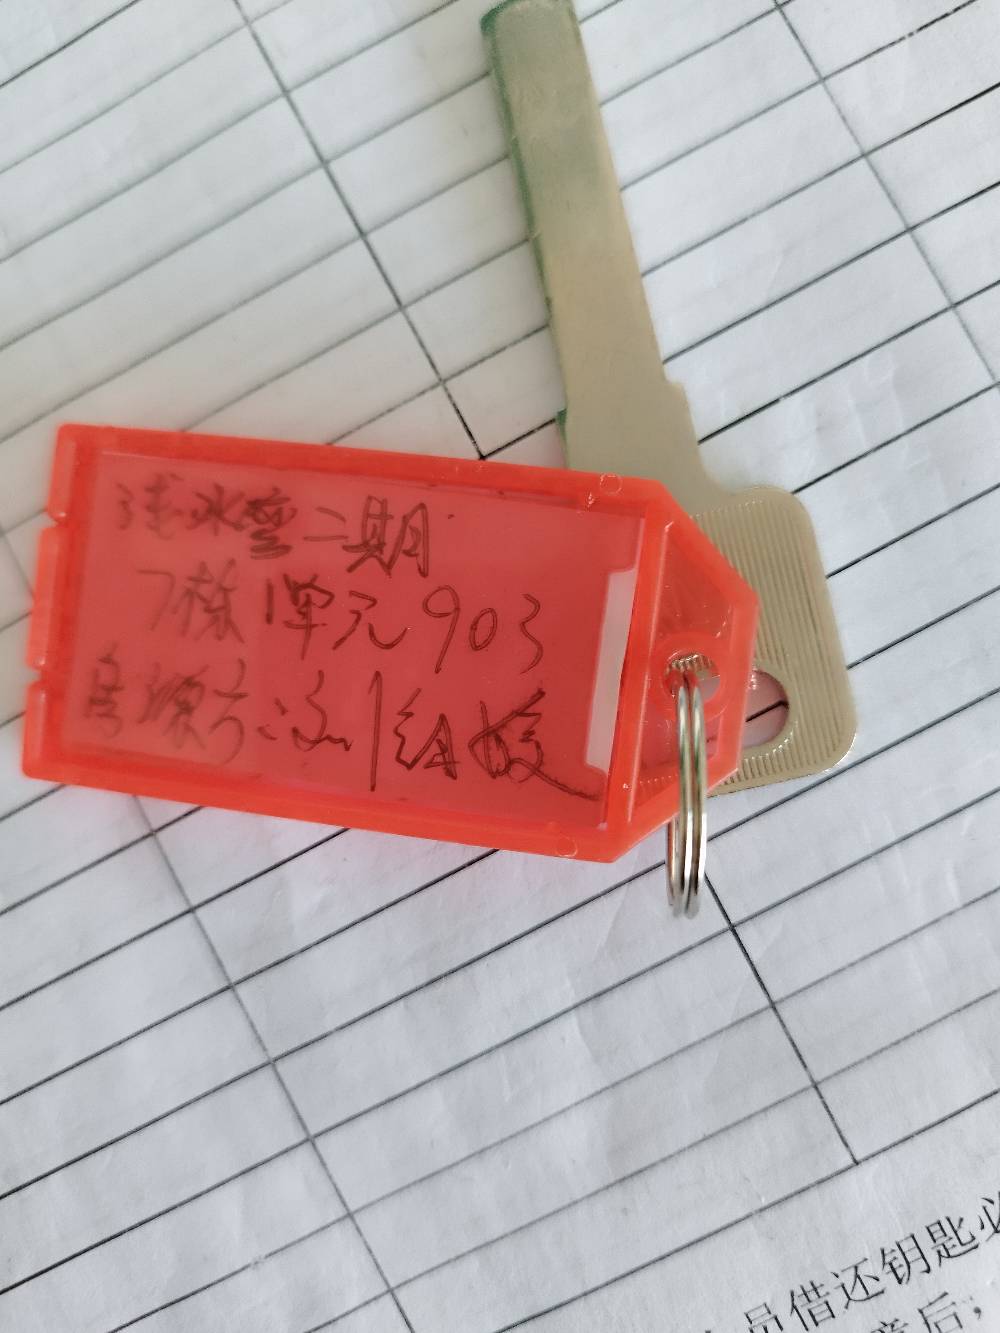 浅水湾二期
7栋1单元903
房源号:
员借还钥匙必
章后;